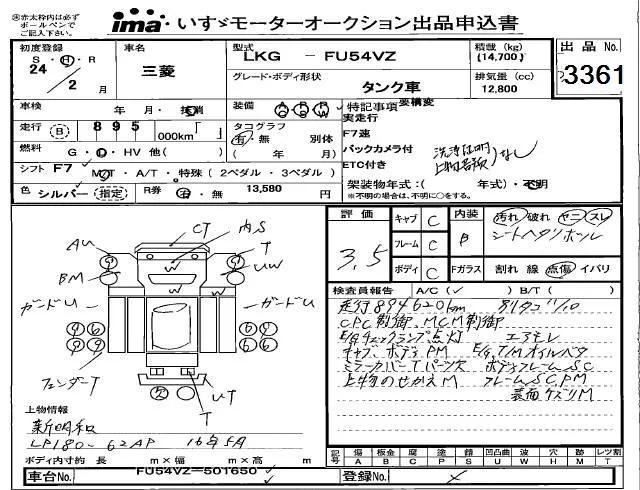 ※赤太枠内は必ず
ボールペンで
ご記入下さい。
ima いすゞモーターオークション出品申込書
初度登録 車名 型式 積載 (kg) 出品 No.
S・H・R LKG - FU54VZ (14,700)
24 三菱 グレード・ボディ形状 排気量 (cc) 3361
2 月 タンク車 12,800
車検 年 月・抹消 装備 特記事項 要構変
実走行
走行 895 000km タコグラフ F7速
有・無 別体 バックカメラ付 洗浄証明 なし
燃料 G・D・HV 他( ) ( 年 月) ETC付き
シフト F7 M/T・A/T・特殊 (2ペダル・3ペダル) 架装物年式:( 年式)・不明
色 シルバー (指定) R券 有・無 13,580 ※不明の場合は、不明に○をする。
評価 キャブ C 内装 汚れ 破れ ヤニ スレ
3.5 フレーム C B シートヘタリ
ボディ C Fガラス 割れ 線 点傷 イバリ
検査員報告 A/C( ✓ ) B/T( )
走行894620km
CPC制御、MCM制御
E/gチェックランプ点灯 エアモレ
キャブ ボディPM E/g、T/Mオイル
ミラーカバーT ボディフレームSC
フレームSC、PM
CT 内S
AU T
BM UW
W W
ガードU ガードU
フェンダーT UT
T
上物情報
新明和
LP180- 62AP 16年5月
ボディ内寸約 長 m×幅 m×高 m
記号 傷 板金 腐 塗 錆 凹凸曲 波 穴 跡 レツ割
A B C P S U W H M T
車台No. FU54VZ-501650 登録No.